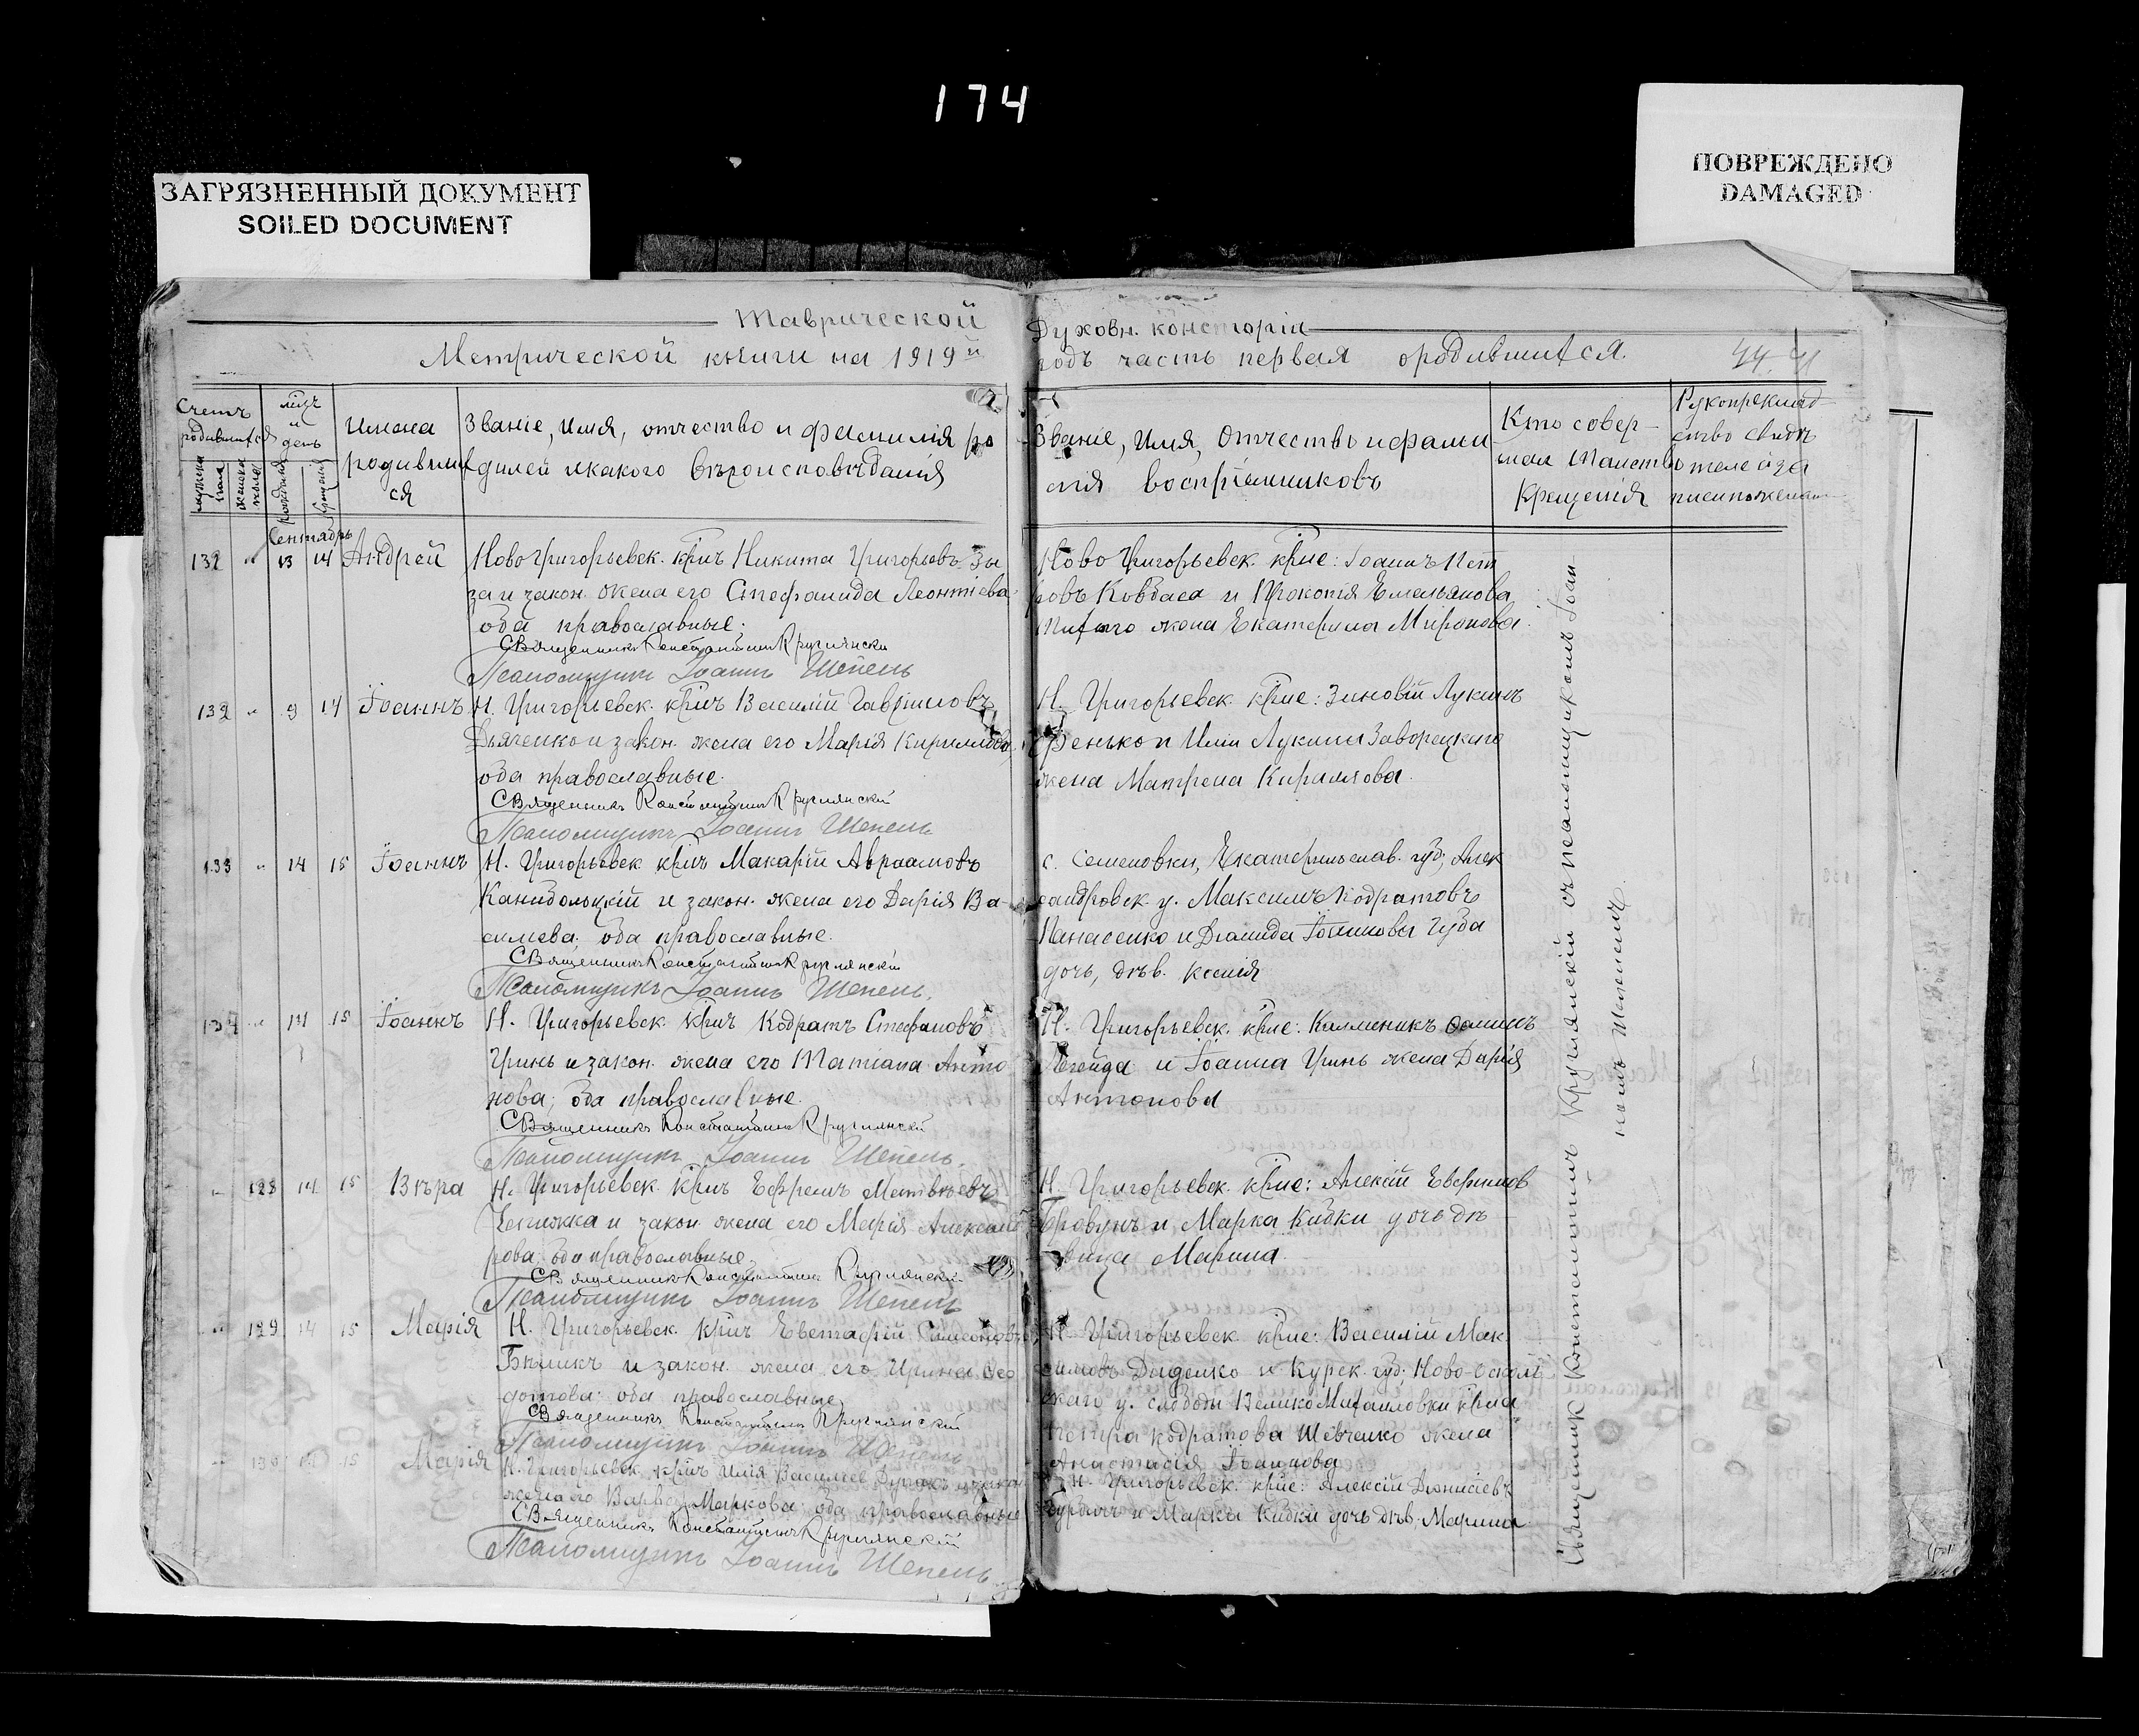 174
ЗАГРЯЗНЕННЫЙ ДОКУМЕНТ
SOILED DOCUMENT
ПОВРЕЖДЕНО
DAMAGED
Таврической
Метрической книги на 1919й
Счетъ родившихся
мужска пола
женска пола
мѣц. и день
Рожденія
Крещенія
Имена родившихся
Званіе, имя, отчество и фамилія ро
дителей и какого вѣроисповѣданія
Сентябрь
132 " 13 14 Андрей Ново Григорьевск. кр-нъ Никита Григорьевъ
за и закон. жена его Стефанида Леонтіева
оба православные.
Священникъ Константинъ Круглянскій
Псаломщикъ Іоаннъ Шепель
132 " 9 14 Іоаннъ Н. Григорьевск. кр-нъ Василій Гавриловъ
Дьяченко и закон. жена его Марія Кириллова,
оба православные.
Священникъ Константинъ Круглянскій
Псаломщикъ Іоаннъ Шепель.
133 " 14 15 Іоаннъ Н. Григорьевск. кр-нъ Макарій Авраамовъ
и закон. жена его Дарія Ва-
сильева; оба православные.
Священникъ Константинъ Круглянскій
Псаломщикъ Іоаннъ Шепель.
134 " 14 15 Іоаннъ Н. Григорьевск. кр-нъ Кодратъ Стефановъ
Гринь и закон. жена его Татіана Анто
нова; оба православные.
Священникъ Константинъ Круглянскій
Псаломщикъ Іоаннъ Шепель.
" 128 14 15 Вѣра Н. Григорьевск. кр-нъ Ефремъ Матвѣевъ
и закон. жена его Марія Александ
рова оба православные.
Священникъ Константинъ Круглянскій
Псаломщикъ Іоаннъ Шепель
" 129 14 15 Марія Н. Григорьевск. кр-нъ Евстафій Симеоновъ
и закон. жена его Ирина Ѳео
дотова оба православные
Священникъ Константинъ Круглянскій
Псаломщикъ Іоаннъ Шепель
" 130 14 15 Марія Н. Григорьевск. кр-нъ Илія Васильев и закон
жена его Варвар Маркова оба православные
Священникъ Константинъ Круглянскій
Псаломщикъ Іоаннъ Шепель
Духовн. консторіи
годъ часть первая о родившихся.
44
Званіе, имя, отчество и фами
лія воспріемниковъ
Кто совер-
шал таинство
Крещенія
Рукоприклад-
ство свидѣ
теле
Ново Григорьевск. кр-не: Іоаннъ Пет
ровъ Ковбаса и Прокопія Емельянова
жена Екатерина Миронова.
Н. Григорьевск. кр-не: Зиновій Лукинъ
Фенько и Иліи Лукина
жена Матрена Кириллова.
с. Семеновки, Екатеринослав. губ; Алек
сандровск у. Максимъ Кодратовъ
Панасенко и
дочь, дѣв. Ксенія
Н. Григорьевск. кр-не:
Легейда и Іоанна Гринь жена Дарія
Антонова
Н. Григорьевск. кр-не: Алексій Евфимов
и Марка Кибки дочь дѣ
вица Марина.
Н. Григорьевск кр-не: Василій Мак
симовъ Диденко и Курск. губ: Ново-Оскол
скаго у. слободы Велико Михаиловки кр-на
Петра Кодратова Шевченко жена
Анастасія Іоаннова
Н. Григорьевск. кр-не: Алексій Діонисіевъ
и Марка Кибки дочь дѣв, Марина.
Священникъ Константинъ Круглянскій съ псаломщикомъ Іоан-
номъ Шепелемъ.